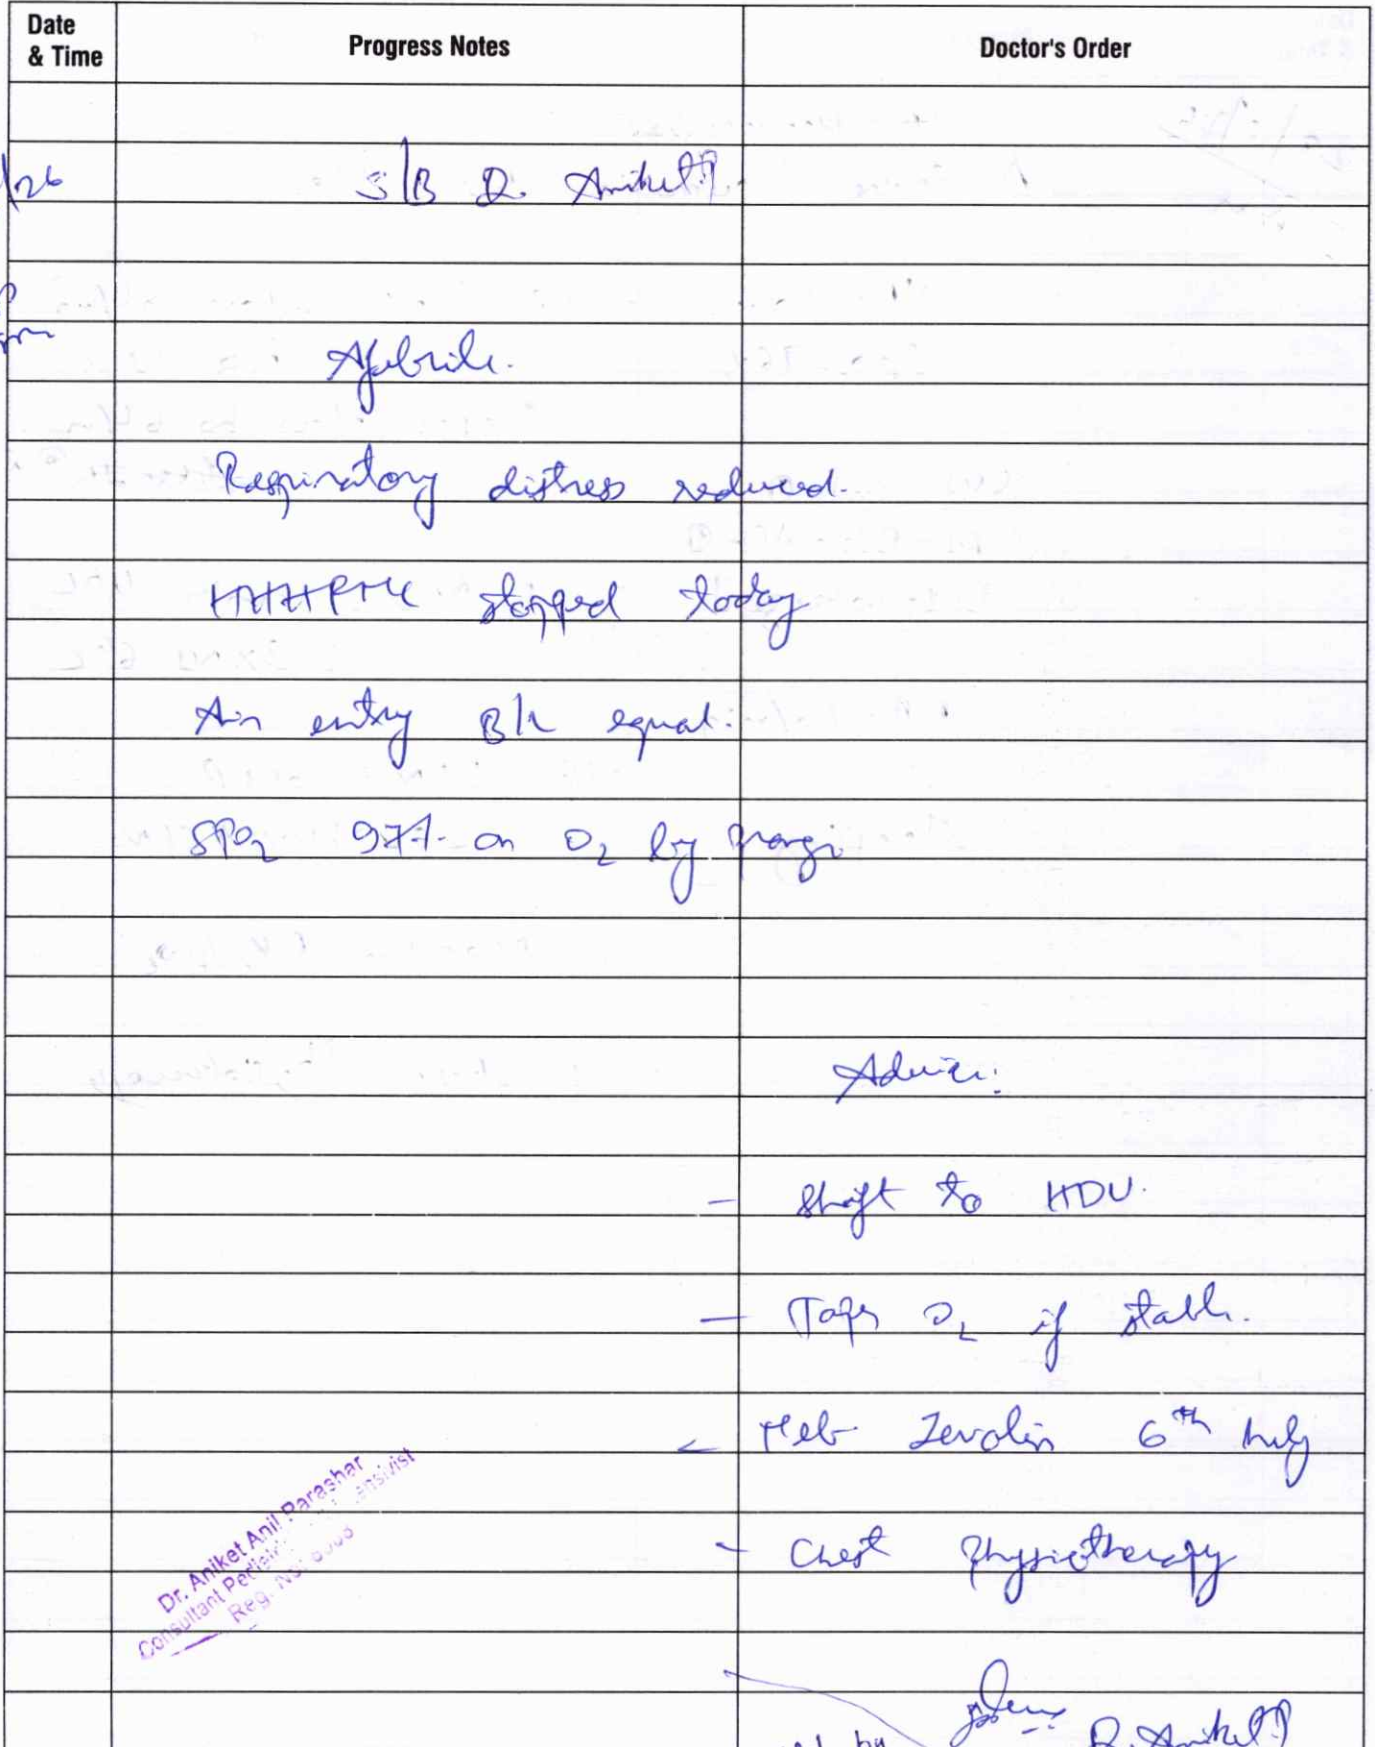 Date & Time
Progress Notes
Doctor's Order
/26
S/B Dr. Aniket P
Afebrile.
Respiratory distress reduced.
HHHFNC stopped today
Air entry B/L equal.
SPO2 97% on O2 by prongs
Advice:
- Shift to HDU.
- Taper O2 if stable.
- Neb Zevolin 6th hrly
- Chest Physiotherapy
Dr. Aniket Anil Parashar
Consultant
Reg. No.
by
Dr. Aniket P